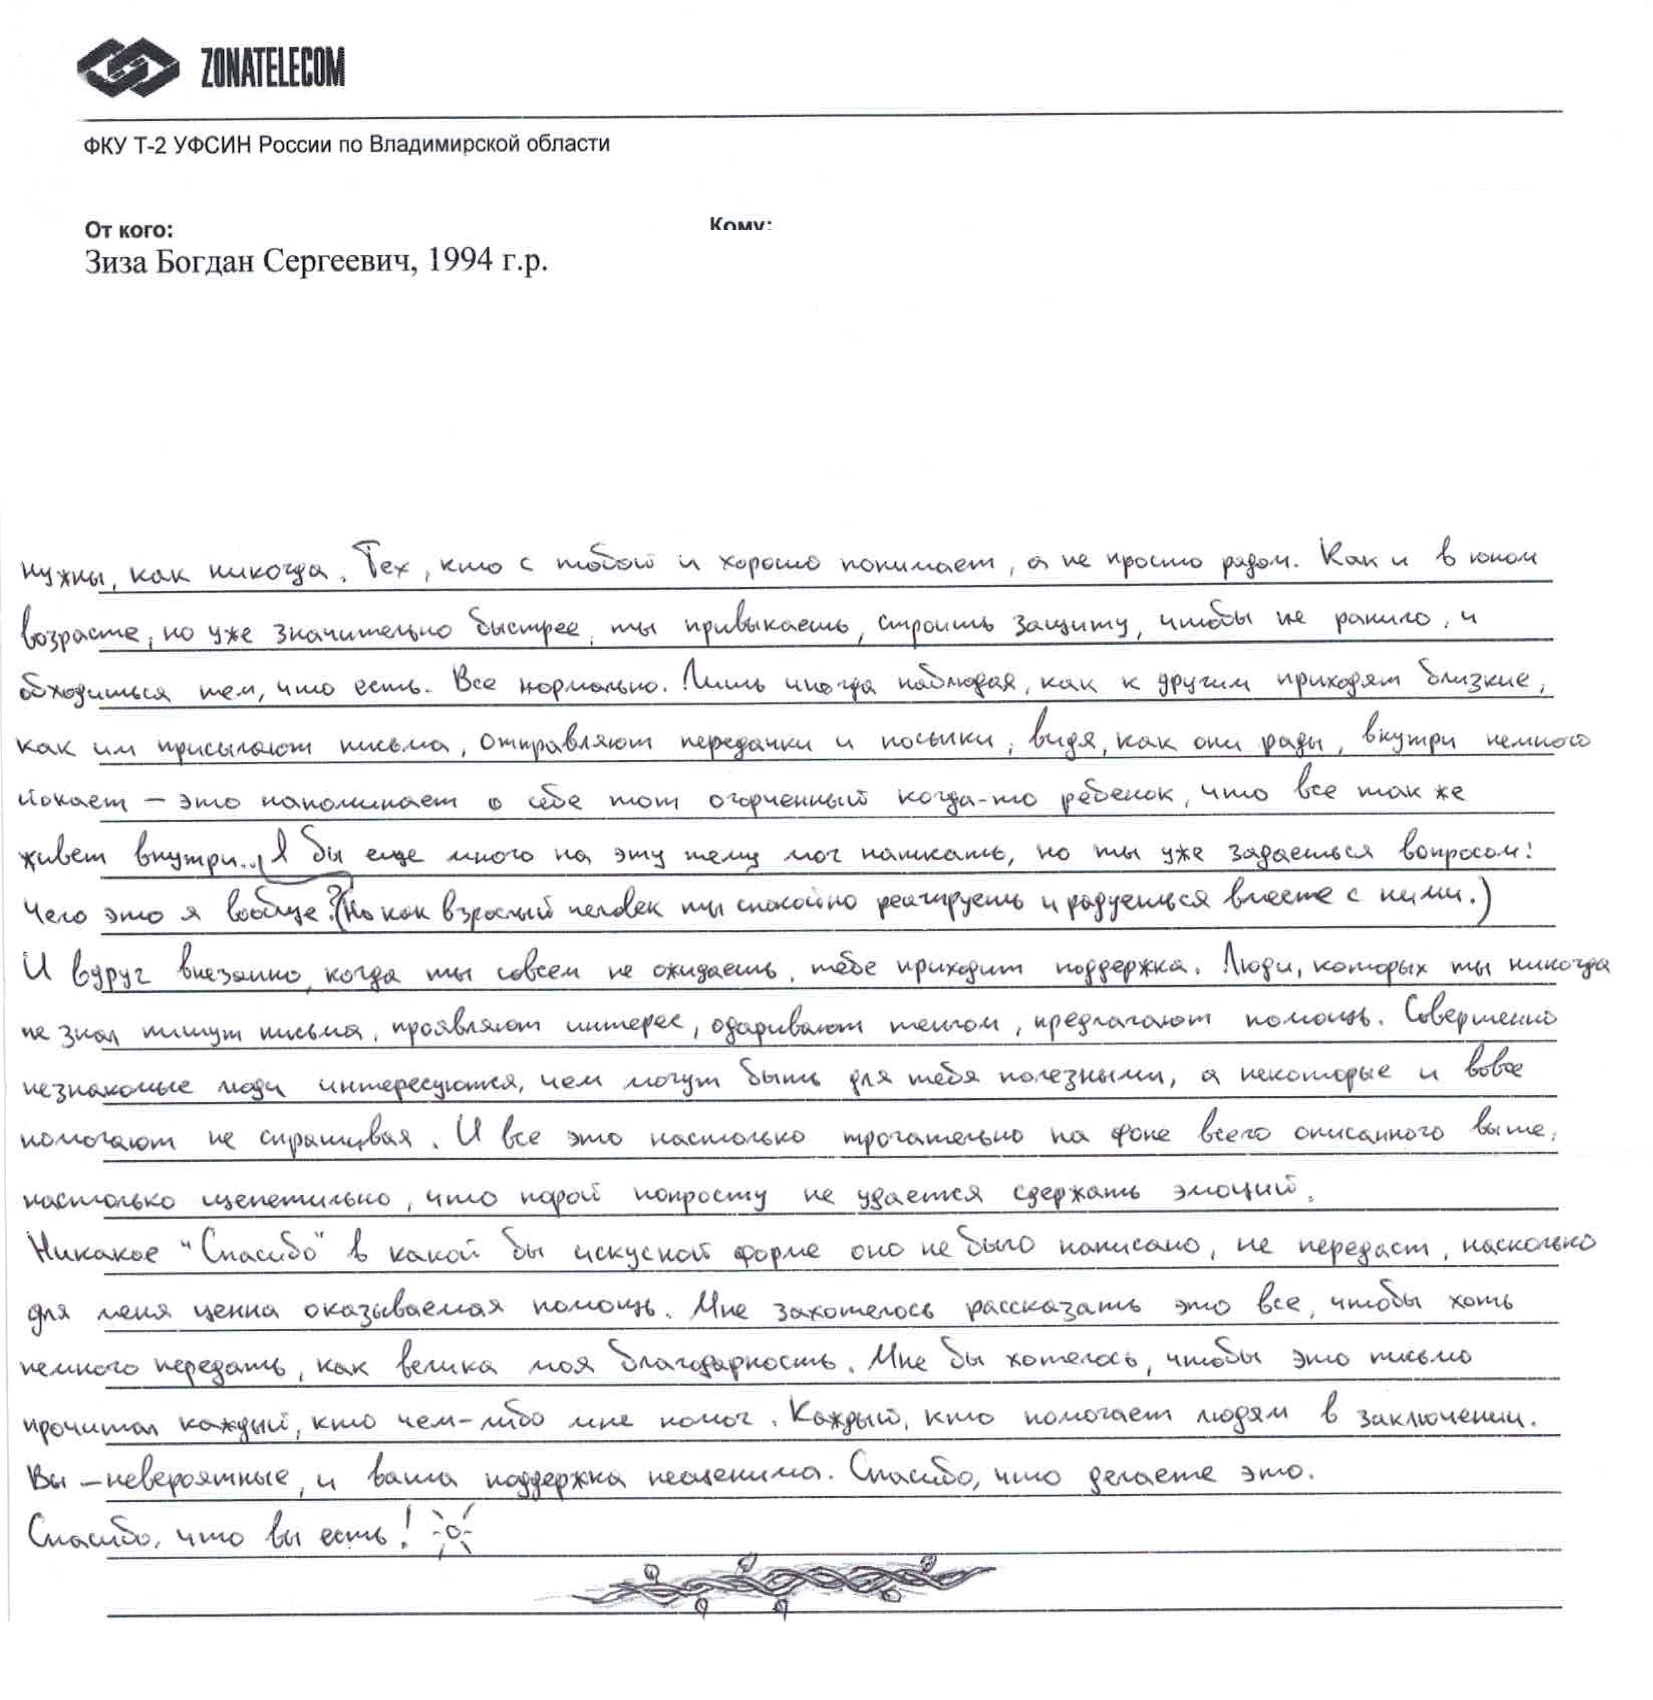 ZONATELECOM
ФКУ Т-2 УФСИН России по Владимирской области
От кого:
Кому:
Зиза Богдан Сергеевич, 1994 г.р.
нужны, как никогда. Тех, кто с тобой и хорошо понимает, а не просто рядом. Как и в юном
возрасте, но уже значительно быстрее, ты привыкаешь, строить защиту, чтобы не ранило, и
обходиться тем, что есть. Все нормально. Лишь иногда наблюдая, как к другим приходят близкие,
как им присылают письма, отправляют передачки и посылки, видя, как они рады, внутри немного
йокает – это напоминает о себе тот огорченный когда-то ребенок, что все так же
живет внутри... Я бы еще много на эту тему мог написать, но ты уже задаешься вопросом:
Чего это я вообще? (Но как взрослый человек ты спокойно реагируешь и радуешься вместе с ними.)
И вдруг внезапно, когда ты совсем не ожидаешь, тебе приходит поддержка. Люди, которых ты никогда
не знал пишут письма, проявляют интерес, одаривают теплом, предлагают помощь. Совершенно
незнакомые люди интересуются, чем могут быть для тебя полезными, а некоторые и вовсе
помогают не спрашивая. И все это настолько трогательно на фоне всего описанного выше,
настолько щепетильно, что порой попросту не удается сдержать эмоций.
Никакое "Спасибо" в какой бы искусной форме оно не было написано, не передаст, насколько
для меня ценна оказываемая помощь. Мне захотелось рассказать это все, чтобы хоть
немного передать, как велика моя благодарность. Мне бы хотелось, чтобы это письмо
прочитал каждый, кто чем-либо мне помог. Каждый, кто помогает людям в заключении.
Вы – невероятные, и ваша поддержка неоценима. Спасибо, что делаете это.
Спасибо, что вы есть!